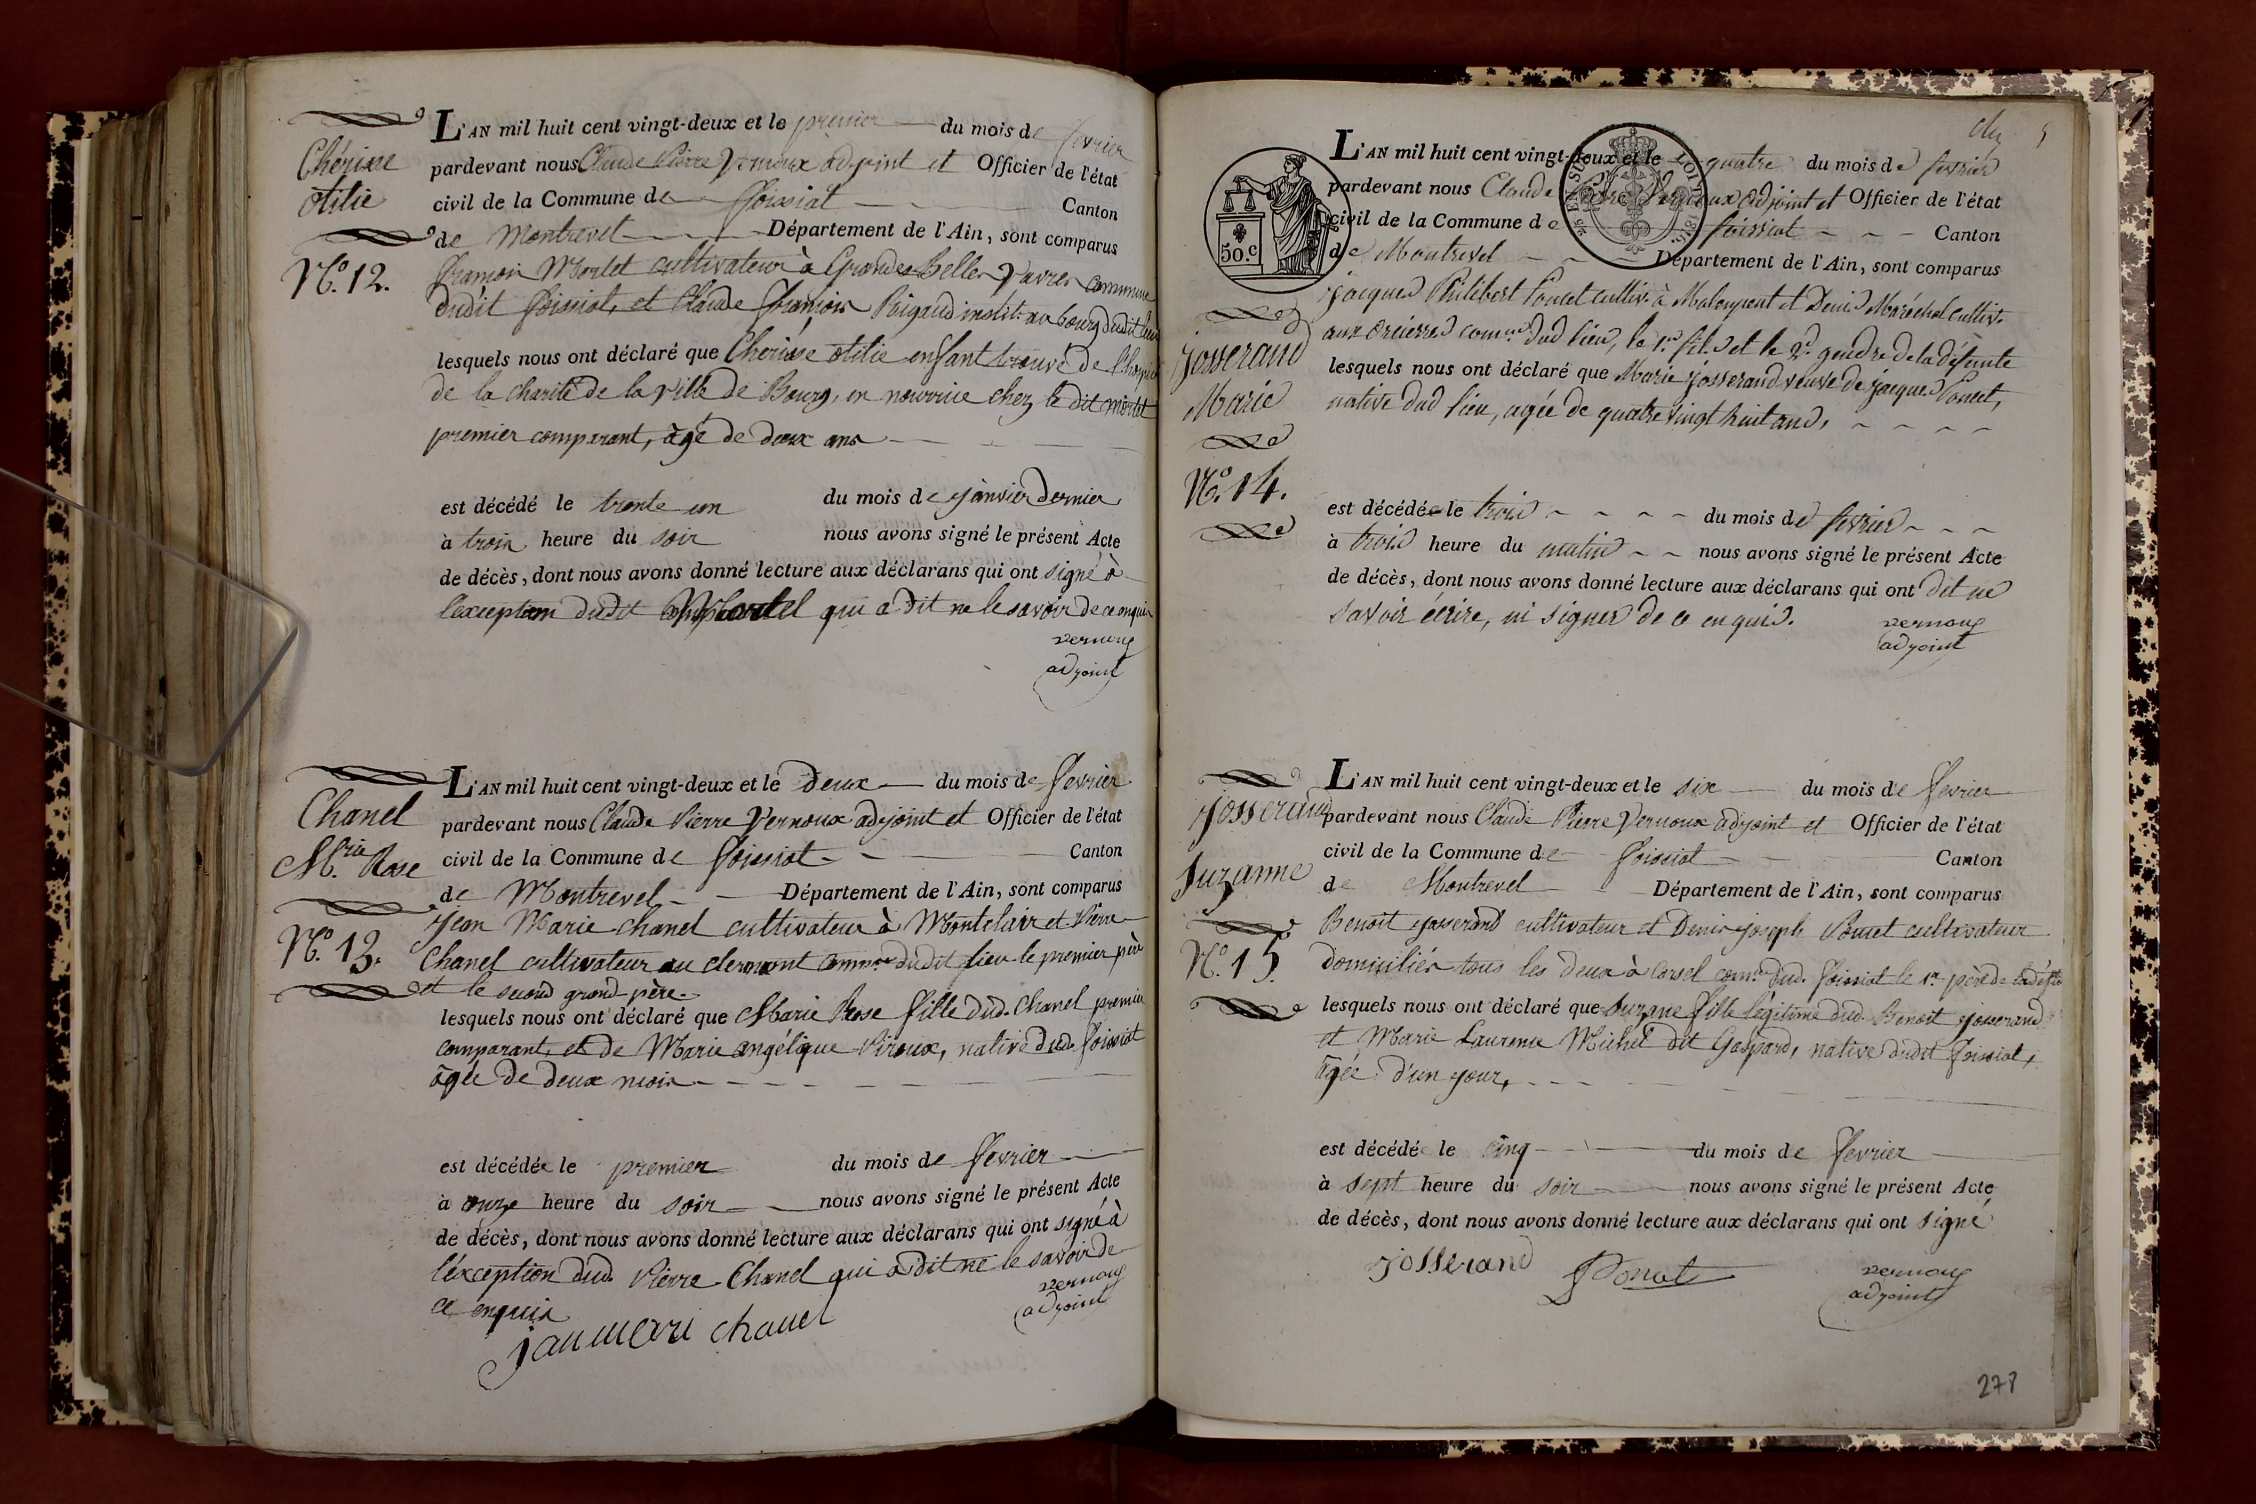 Chérine
otilie
N.º 12.
L'AN mil huit cent vingt-deux et le premier du mois de fevrier
pardevant nous Claude Pierre Vernoux adjoint et Officier de l'état
civil de la Commune de foissiat Canton
de Montrevel Département de l'Ain, sont comparus
françois Morlet cultivateur à Grandes Belles Vavres commune
dudit foissiat, et Claude françois Rigaud instit. au bourg dudit lieu
lesquels nous ont déclaré que Cherine otilie enfant trouvé de l'hospice
de la charité de la ville de Bourg, en nourrice chez le dit morlet
premier comparant, âgé de deux ans
est décédé le trente un du mois de janvier dernier
à trois heure du soir nous avons signé le présent Acte
de décès, dont nous avons donné lecture aux déclarans qui ont signé à
l'exception dudit qui a dit ne le savoir de ce enquis
vernoux
adjoint
Chanel
M.rie Rose
N.º 13.
L'AN mil huit cent vingt-deux et le deux du mois de fevrier
pardevant nous Claude Pierre Vernoux adjoint et Officier de l'état
civil de la Commune de foissiat Canton
de Montrevel Département de l'Ain, sont comparus
Jean Marie chanel cultivateur à Montclair et Pierre
Chanel cultivateur au clermont comm.ne dudit lieu le premier père
et le second grand-père
lesquels nous ont déclaré que Marie Rose fille dud. Chanel premier
comparant, et de Marie angélique Piroux, native dud. foissiat
âgée de deux mois
est décédée le premier du mois de fevrier
à onze heure du soir nous avons signé le présent Acte
de décès, dont nous avons donné lecture aux déclarans qui ont signé à
l'éxception dud. Pierre Chanel qui a dit ne le savoir de
ce enquis
vernoux
adjoint
jan mari chanel
50 C
Josserand
Marie
N.º 14.
L'AN mil huit cent vingt-deux et le quatre du mois de fevrier
pardevant nous Claude Pierre Vernoux adjoint et Officier de l'état
civil de la Commune de foissiat Canton
de Montrevel Département de l'Ain, sont comparus
jacques Philibert Poncet cultiv. à Malonpont et Denis Maréchal cultiv.
aux orcières com.ne dud lieu, le 1.er fils et le 2.e gendre de la défunte
lesquels nous ont déclaré que Marie josserand veuve de jacques Poncet,
native dud lieu, agée de quatre vingt huit ans,
est décédée le trois du mois de fevrier
à trois heure du matin nous avons signé le présent Acte
de décès, dont nous avons donné lecture aux déclarans qui ont dit ne
savoir écrire, ni signer de ce enquis.
vernoux
adjoint
Josserand
Suzanne
N.º 15.
L'AN mil huit cent vingt-deux et le six du mois de fevrier
pardevant nous Claude Pierre Vernoux adjoint et Officier de l'état
civil de la Commune de foissiat Canton
de Montrevel Département de l'Ain, sont comparus
Benoit josserand cultivateur et Denis joseph Poncet cultivateur
domiciliés tous les deux à Corsel com.ne dud. foissiat le 1.er père de la défte
lesquels nous ont déclaré que Suzane fille légitime dud. Benoit josserand
et Marie Laurence Michel dit Gaspard, native dudit foissiat,
âgée d'un jour,
est décédée le cinq du mois de fevrier
à sept heure du soir nous avons signé le présent Acte
de décès, dont nous avons donné lecture aux déclarans qui ont signé
josserand
vernoux
adjoint